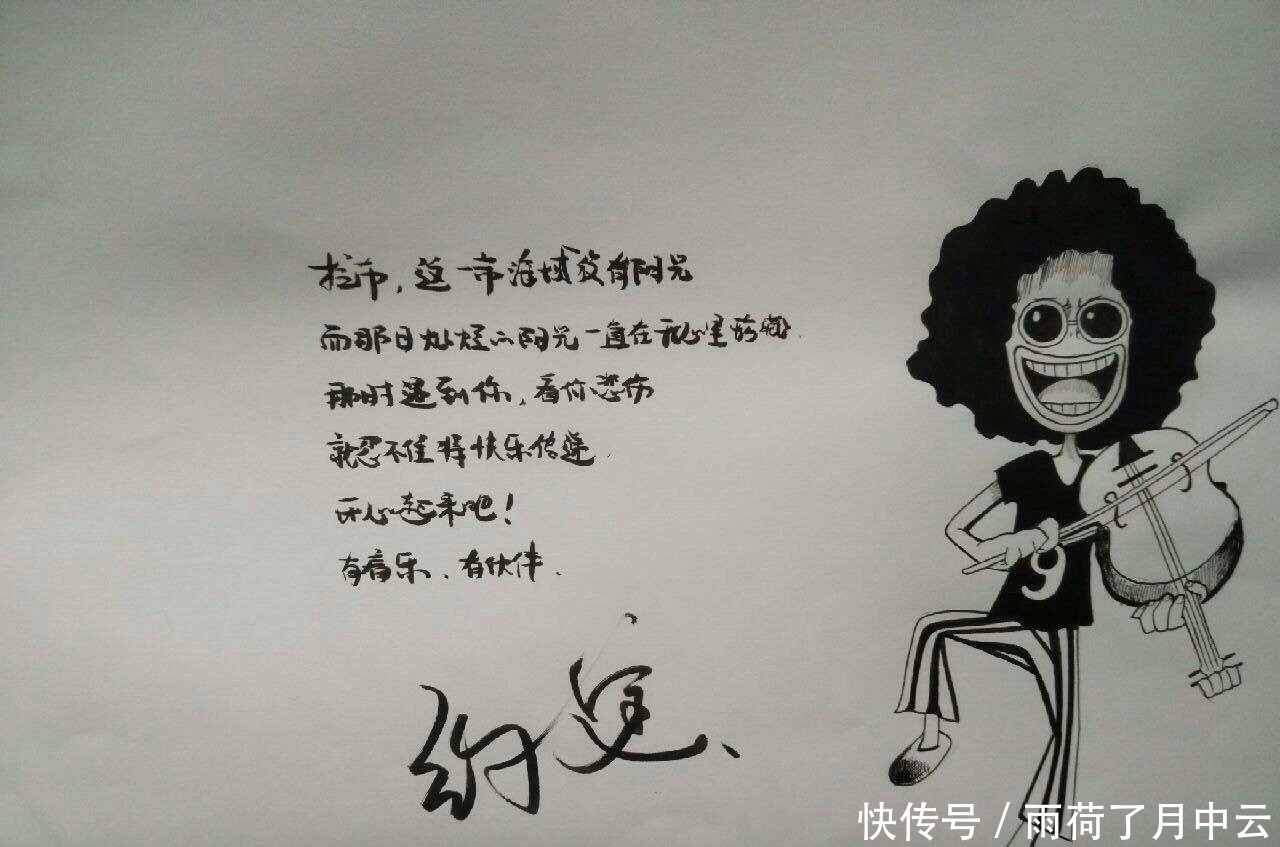 拉布,这一带海域没有阳光
而那日灿烂的阳光一直在我心里荡漾.
那时遇到你,看你悲伤
就忍不住将快乐传递.
开心起来吧!
有音乐、有伙伴.
约定、
9
快传号 / 雨荷了月中云